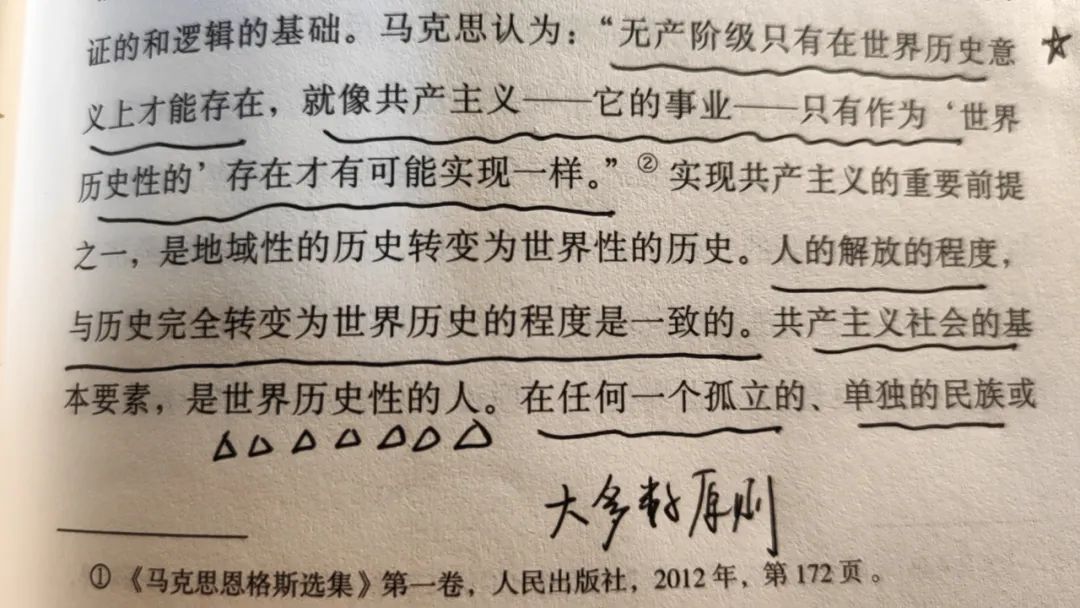 证的和逻辑的基础。马克思认为：“无产阶级只有在世界历史意
义上才能存在，就像共产主义——它的事业——只有作为‘世界
历史性的’存在才有可能实现一样。”②实现共产主义的重要前提
之一，是地域性的历史转变为世界性的历史。人的解放的程度，
与历史完全转变为世界历史的程度是一致的。共产主义社会的基
本要素，是世界历史性的人。在任何一个孤立的、单独的民族或
大多数原则
①《马克思恩格斯选集》第一卷，人民出版社，2012年，第172页。